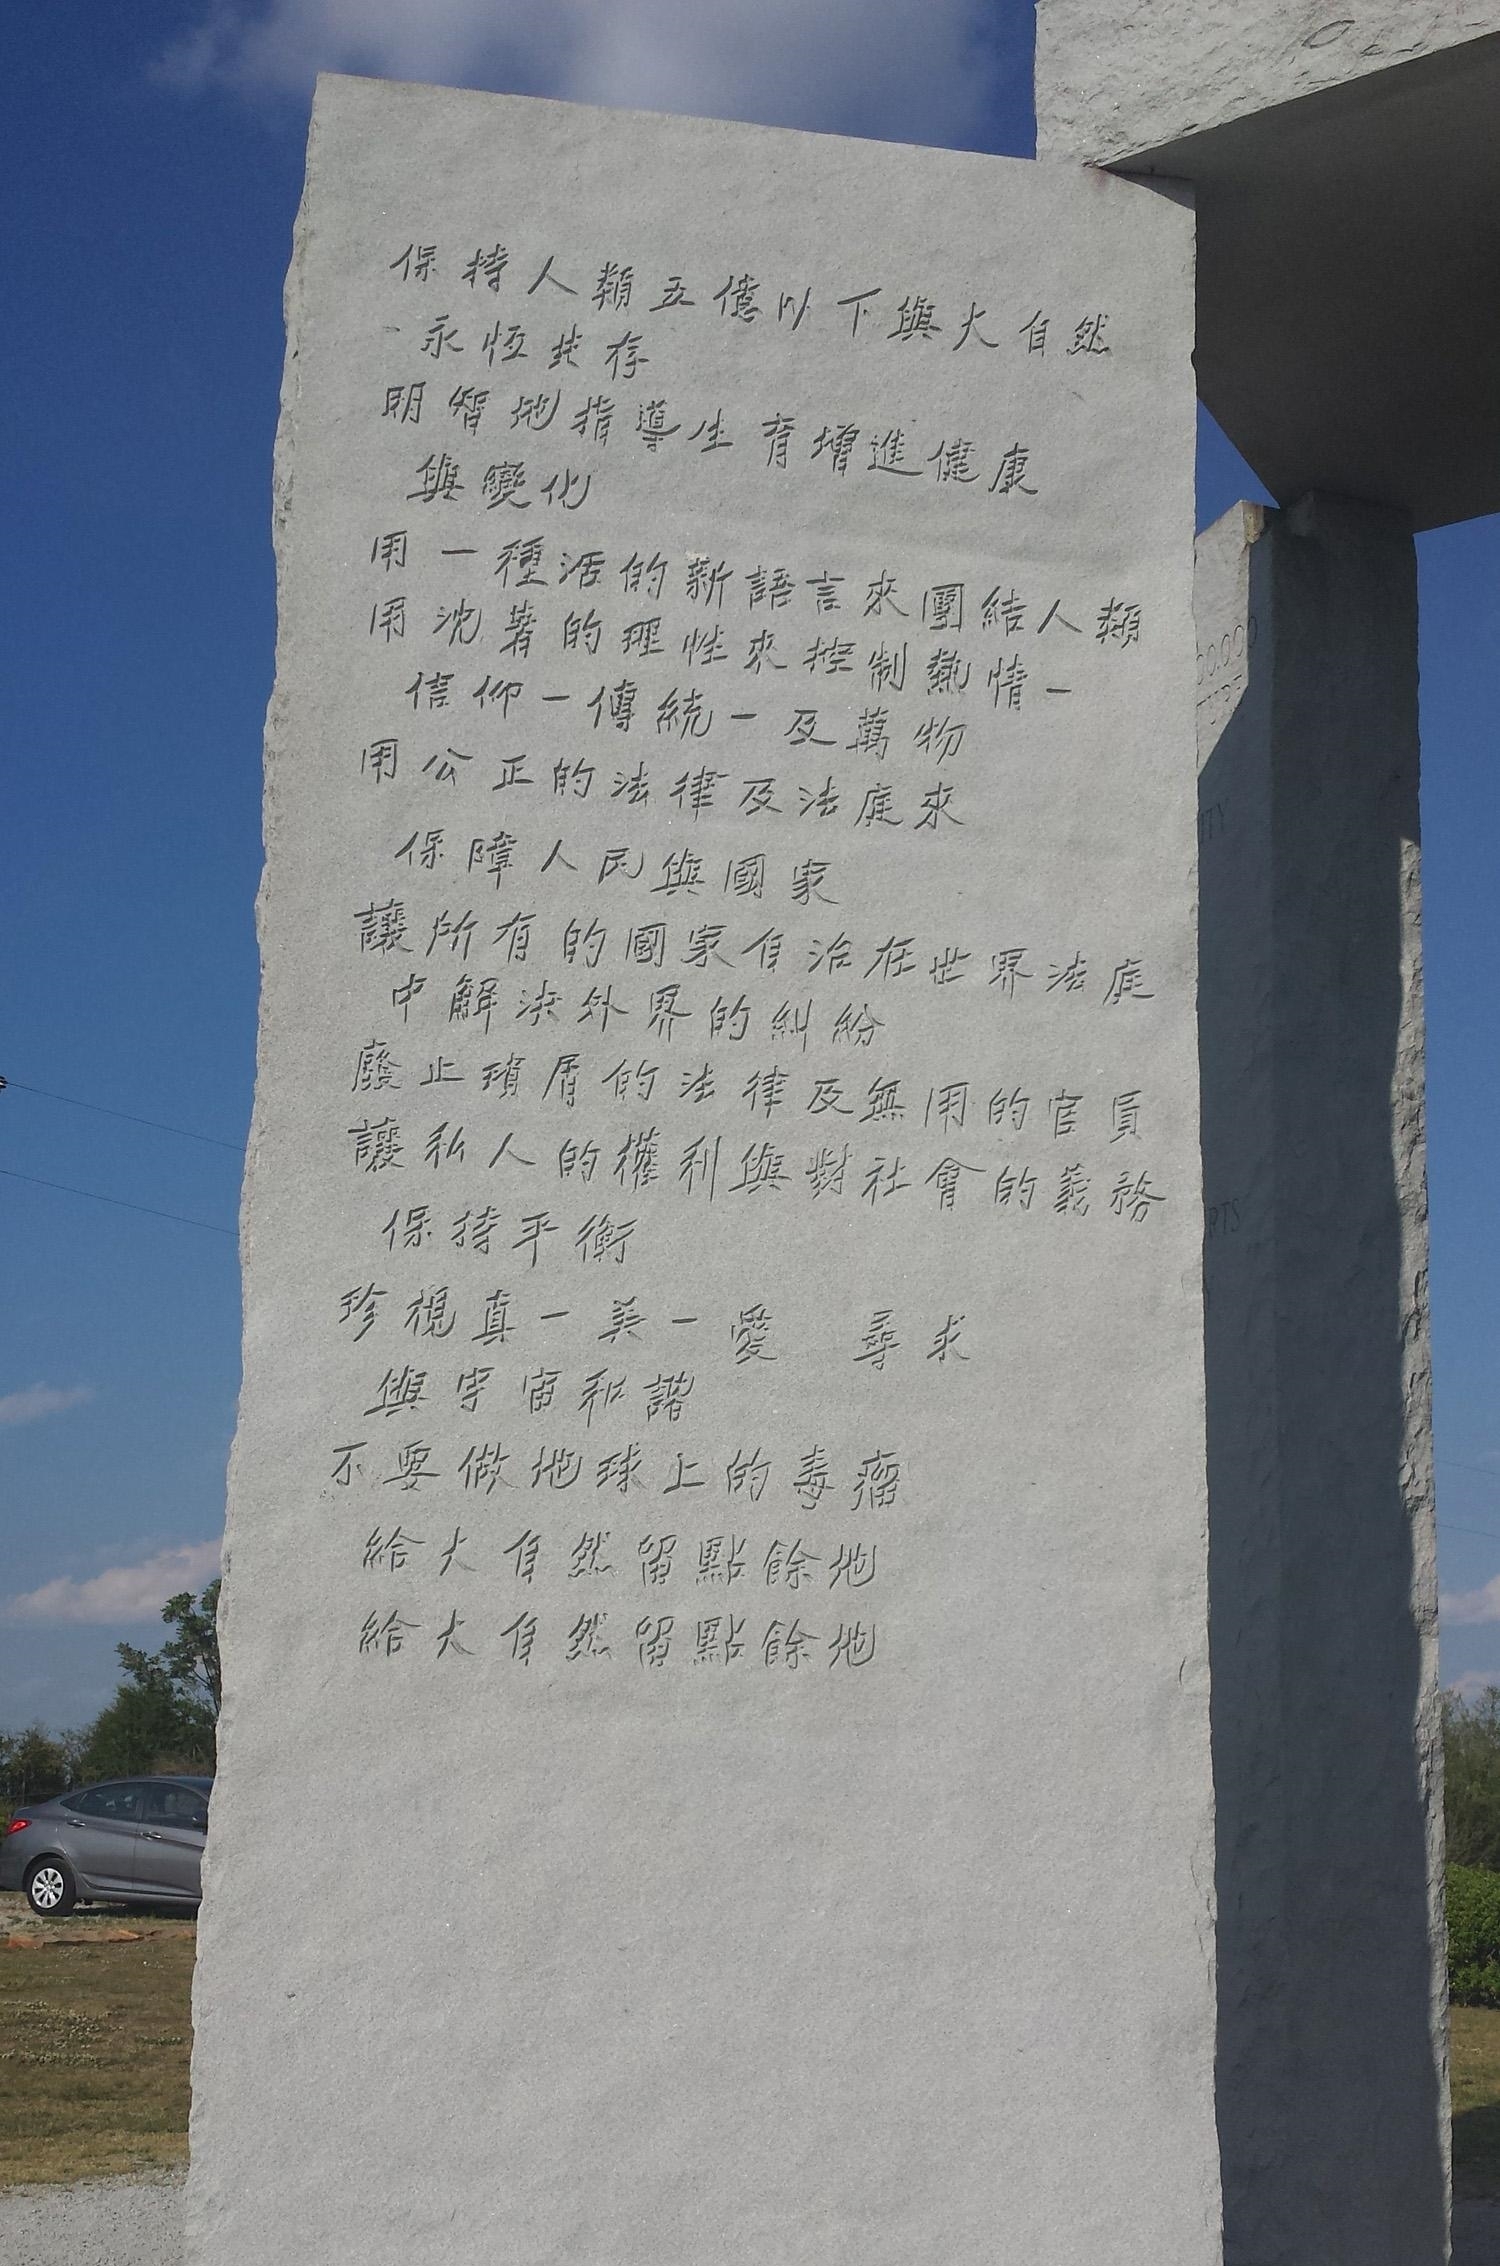 保持人類五億以下與大自然
永恆共存
明智地指導生育增進健康
與變化
用一種活的新語言來團結人類
用沈著的理性來控制熱情一
信仰一傳統一及萬物
用公正的法律及法庭來
保障人民與國家
讓所有的國家自治在世界法庭
中解決外界的糾紛
廢止瑣屑的法律及無用的官員
讓私人的權利與對社會的義務
保持平衡
珍視真一美一愛 尋求
與宇宙和諧
不要做地球上的毒瘤
給大自然留點餘地
給大自然留點餘地